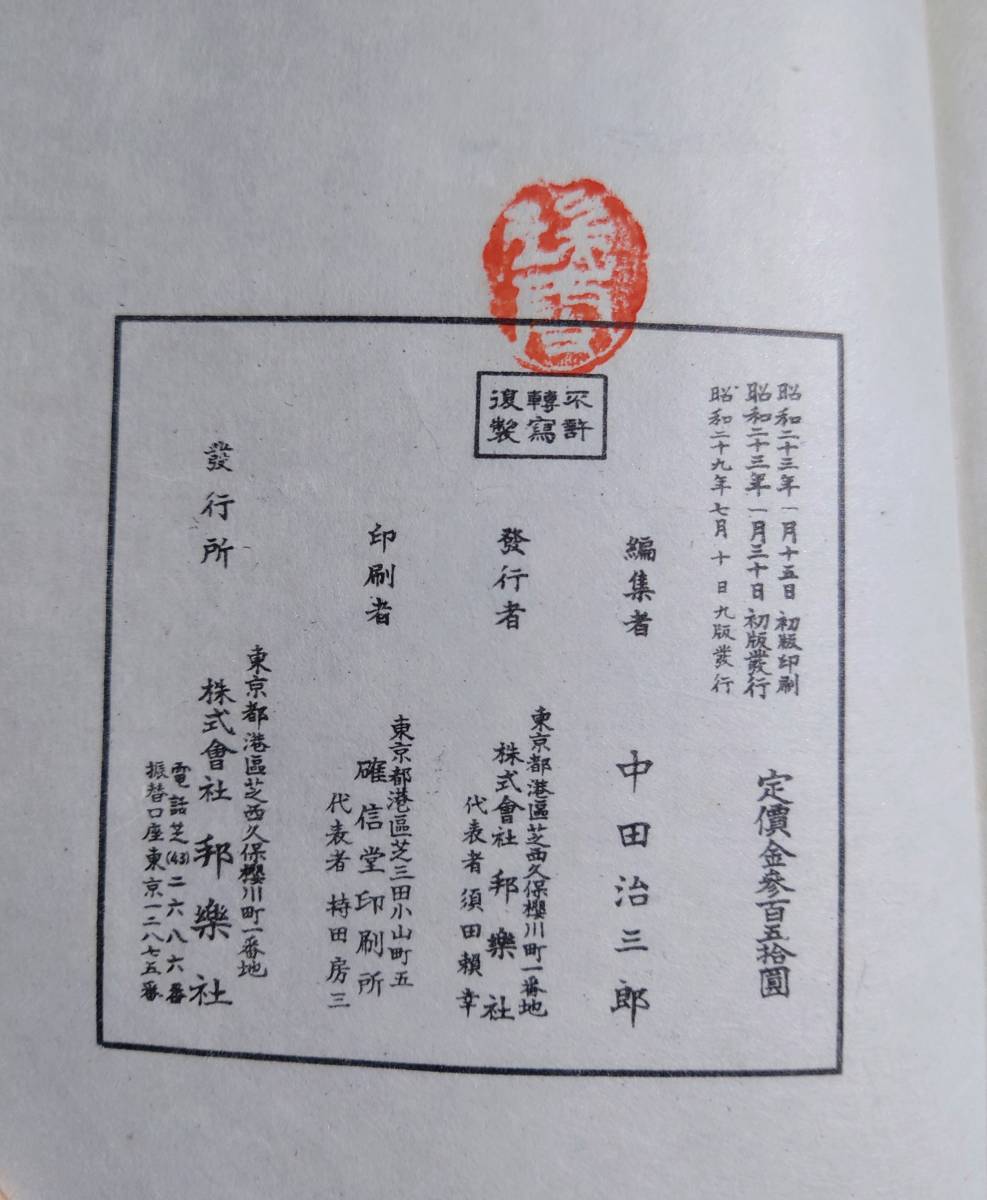 昭和二十三年一月十五日 初版印刷
昭和二十三年一月三十日 初版發行
昭和二十九年七月十日九版發行
定價金參百五拾圓
不許
轉寫
復製
編集者
中田治三郎
發行者
東京都港區芝西久保櫻川町一番地
株式會社 邦樂社
代表者 須田賴幸
印刷者
東京都港區芝三田小山町五
確信堂印刷所
代表者 持田房三
發行所
東京都港區芝西久保櫻川町一番地
株式會社 邦樂社
電話芝(43)二六八六番
振替口座東京一二八七五番